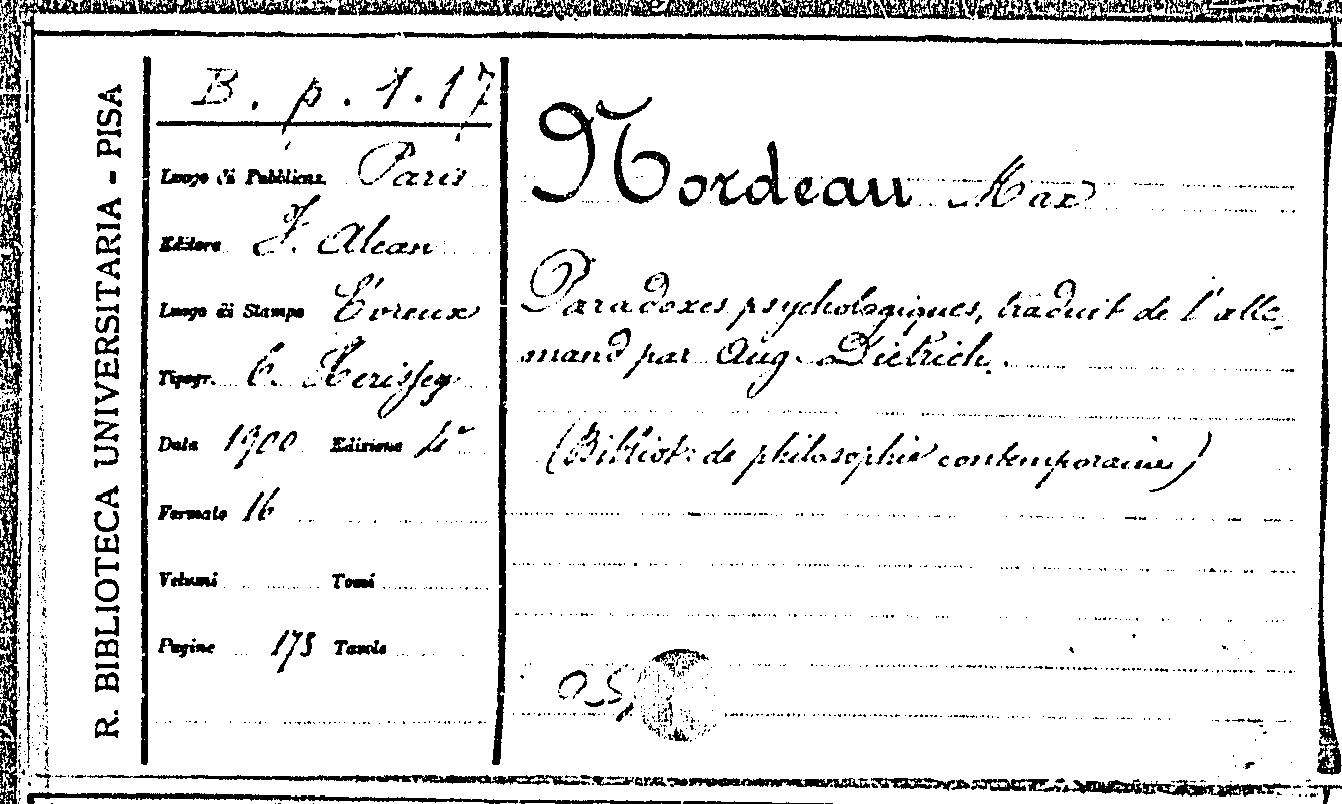 R. BIBLIOTECA UNIVERSITARIA - PISA
B. p. 4. 17
Luogo di Pubblicaz. Paris
Editore F. Alcan
Luogo di Stampa Evreux
Tipogr. C. Herissey
Data 1900 Edizione 4ª
Formato 16
Volumi Tomi
Pagine 175 Tavole
Nordeau Max
Paradoxes psychologiques, traduit de l'alle-
mand par Aug. Dietrich.
(Bibliot: de philosophie contemporaine)